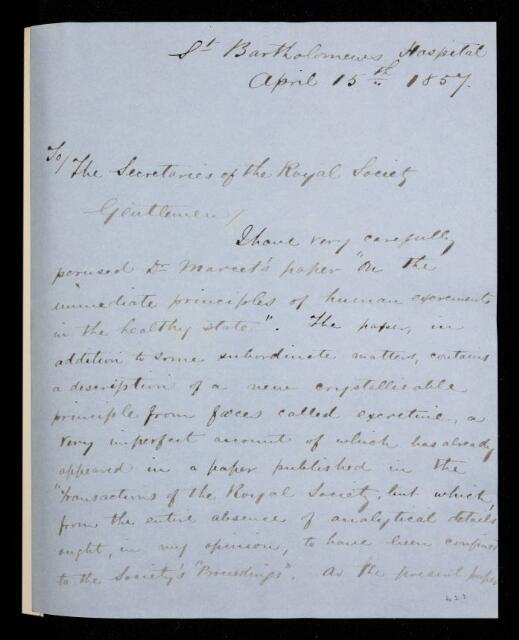 St Bartholomews Hospital
April 15th 1857.
To/
The Secretaries of the Royal Society
Gentlemen/
I have very carefully
perused Dr Marcet's paper "On the
immediate principles of human excrements
in the healthy state". The paper, in
addition to some subordinate matters, contains
a description of a new crystallisable
principle from fæces called excretine, a
very imperfect account of which has already
appeared in a paper published in the
"Transactions of the Royal Society, but which,
from the entire absence of analytical details
ought, in my opinion, to have been confined
to the Society's "Proceedings". As the present paper